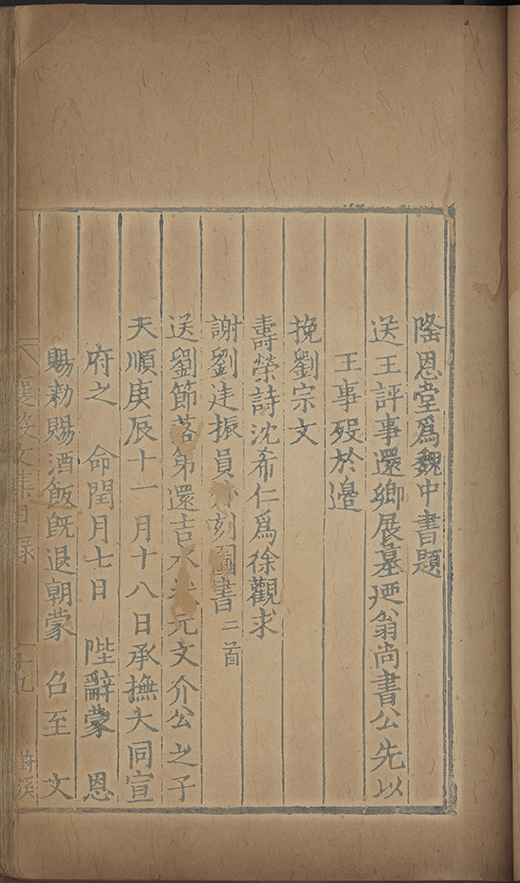 隆恩堂爲魏中書題
送王評事還鄉展墓廼翁尚書公先以
王事歿於邉
挽劉宗文
壽榮詩沈希仁爲徐觀求
謝劉廷振員外刻圖書二首
送劉節落第還吉水 元文介公之子
天順庚辰十一月十八日承撫大同宣
府之 命閏月七日 陛辭蒙 恩
賜勑賜酒飯旣退朝蒙 召至 文
襄毅文集目録